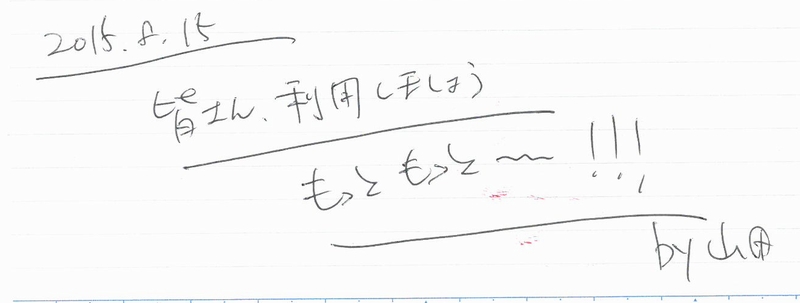 2015.8.15
皆さん、利用しましょう
もっともっと〜!!!
by 山田